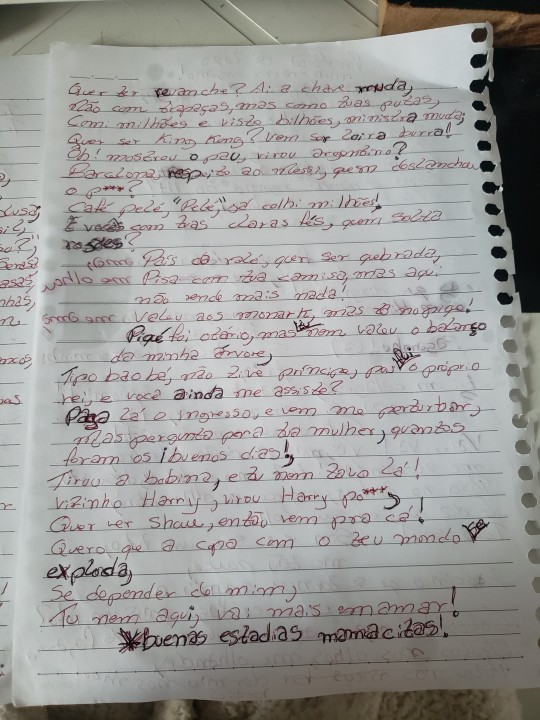 Quer ter revanche? Ai a chave muda,
Não com trapaças, mas como tuas putas,
Com milhões e visto bilhões, ministra muda,
Quer ser King Kong? Vem ser loira burra!
Oh! mostrou o pau, virou argentino?
Barcelona, respeito ao messi, quem deslanchou
o p***?
Café pelé, "Pelé", já colhi milhões!
E vocês com tras claras tés, quem solta
rostes?
Pós da ralé, quer ser quebrada,
Pisa com tua camisa, mas aqui
não vende mais nada!
Valeu aos monark, mas to no pigo!
Piqé foi otário, mas nem valeu o balanço
da minha árvore,
Tipo baobá, não tive príncipe, pari o próprio
rei, e você ainda me assiste?
Paga lá o ingresso, e vem me perturbar,
mas pergunta para tua mulher, quantos
foram os ¡buenos dias!,
Tirou a bobina, e tu nem tava lá!
Vizinho Harry, virou Harry po***,
Quer ver show, então vem pra cá!
Quero que a copa com o teu mundo se
exploda,
Se depender de mim,
Tu nem aqui, vai mais mamar!
*buenas estadias mamacitas!